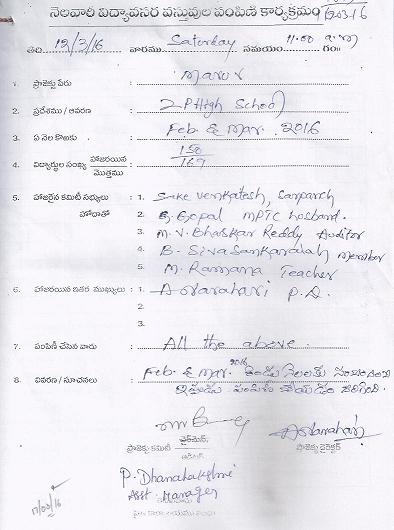 నెలవారీ విద్యావసర వస్తువుల పంపిణీ కార్యక్రమం
తేది 12/3/16 వారము Saturday సమయం 11.00 a.m గం॥
1. ప్రాజెక్టు పేరు : Marur
2. ప్రదేశము / ఆవరణ : Z P High School
3. ఏ నెల కొఱకు : Feb & Mar. 2016
4. విద్యార్థుల సంఖ్య హాజరయిన 150
మొత్తము 167
5. హాజరైన కమిటీ సభ్యులు : 1. Sake Venkatesh, Sarpanch
హోదాతో 2. G. Gopal MPTC husband.
3. M.V. Bhaskar Reddy Auditor
4. B. Siva Sankaraiah Member
5. M. Ramana Teacher
6. హాజరయిన ఇతర ముఖ్యులు : 1. A Narahari P.D.
2.
3.
7. పంపిణీ చేసిన వారు : All the above.
8. వివరణ / సూచనలు : Feb & Mar. 2016 రెండు నెలలకు
పంపిణీ చేయడం జరిగింది.
A Narahari
ప్రాజెక్టు కమిటీ ఛైర్మెన్, ప్రాజెక్టు డైరెక్టర్
P. Dhanalakshmi
Asst. Manager